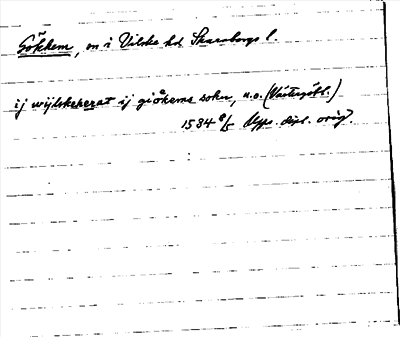 Gökhem, sn i Vilske hd Skaraborgs l.
ij wijlskeherat ij giökeme sokn, u.o. (Västergötl.)
1534 8/5 Upps. dipl. orig.